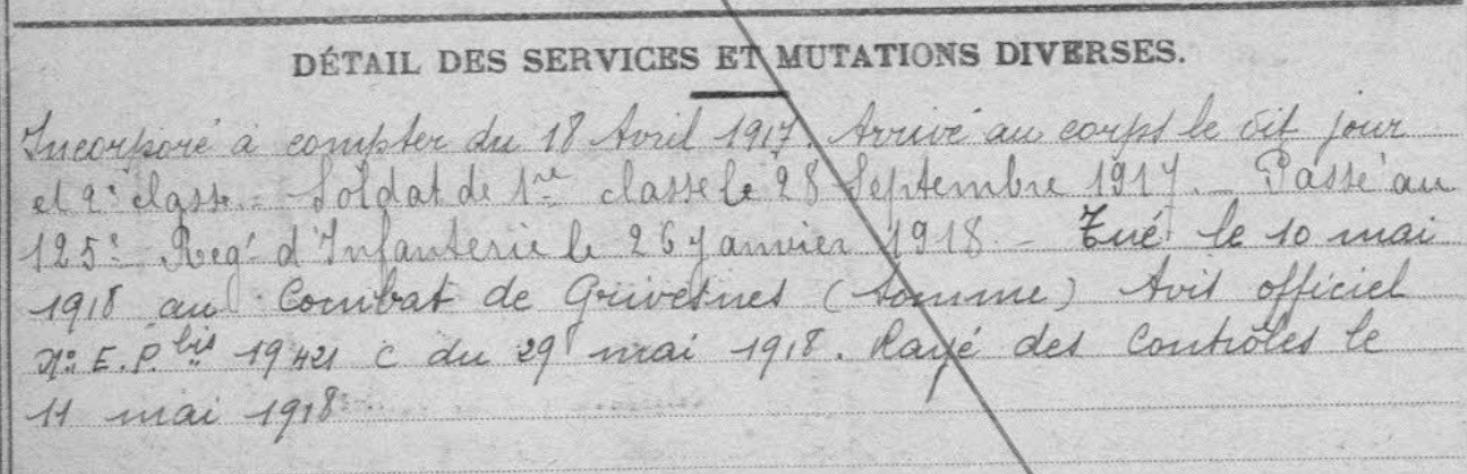 DÉTAIL DES SERVICES ET MUTATIONS DIVERSES.
Incorporé à compter du 18 Avril 1917. Arrivé au corps le dit jour
et 2e classe. - Soldat de 1re classe le 28 Septembre 1917. - Passé au
125e Regt d'Infanterie le 26 Janvier 1918 - Tué le 10 mai
1918 au Combat de Grivesnes (Somme) Avis officiel
No E.P. bis 19421 C du 29 mai 1918. Rayé des Contrôles le
11 mai 1918